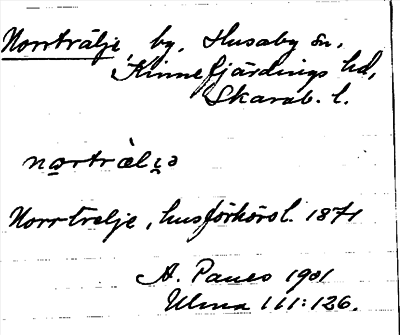 Norrträlje, by, Husaby sn,
Kinnefjärdings hd,
Skarab. l.
Norrtrelje, husförhörsl. 1871
A. Paues 1901
Ulma 111:126.